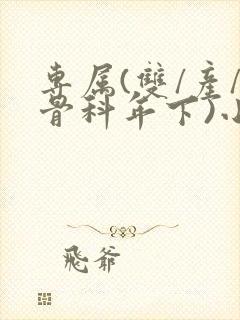 專属(雙/產/
骨科年下)小
飛爺